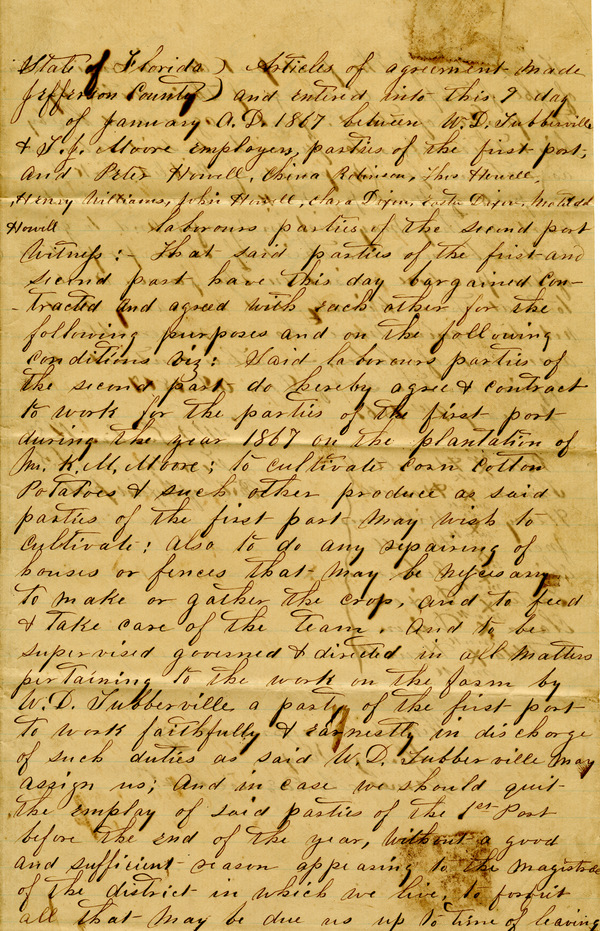 State of Florida ) Articles of agreement made
Jefferson County ) and entired into this 9 day
of January A.D. 1867 between W.D. Tubberville
& T.J. Moore employers, parties of the first port,
and Peter Howell, China Robinson, Thos Howell,
Henry Williams, John Howell, Clara Dixon, Dixon, Matilda
Howell labourers parties of the second port
Witness:- That said parties of the first and
second part have this day bargained con-
-tracted and agreed with each other for the
following purposes and on the following
conditions viz: Said labourers parties of
the second part do hereby agree & contract
to work for the parties of the first port
during the year 1867 on the plantation of
Mr. K. M. Moore; to cultivate corn cotton
Potatoes & such other produce as said
parties of the first part may wish to
cultivate; also to do any repairing of
houses or fences that may be necessary
to make or gather the crop, and to feed
& take care of the team. And to be
supervised governed & directed in all matters
pertaining to the work on the farm by
W.D. Tubberville a party of the first port
to work faithfully & earnestly in discharge
of such duties as said W.D. Tubberville may
assign us; And in case we should quit
the employ of said parties of the 1st Port
before the end of the year, without a good
and sufficient reason appearing to the Magistrate
of the district in which we live, to forfiit
all that may be due us up to time of leaving